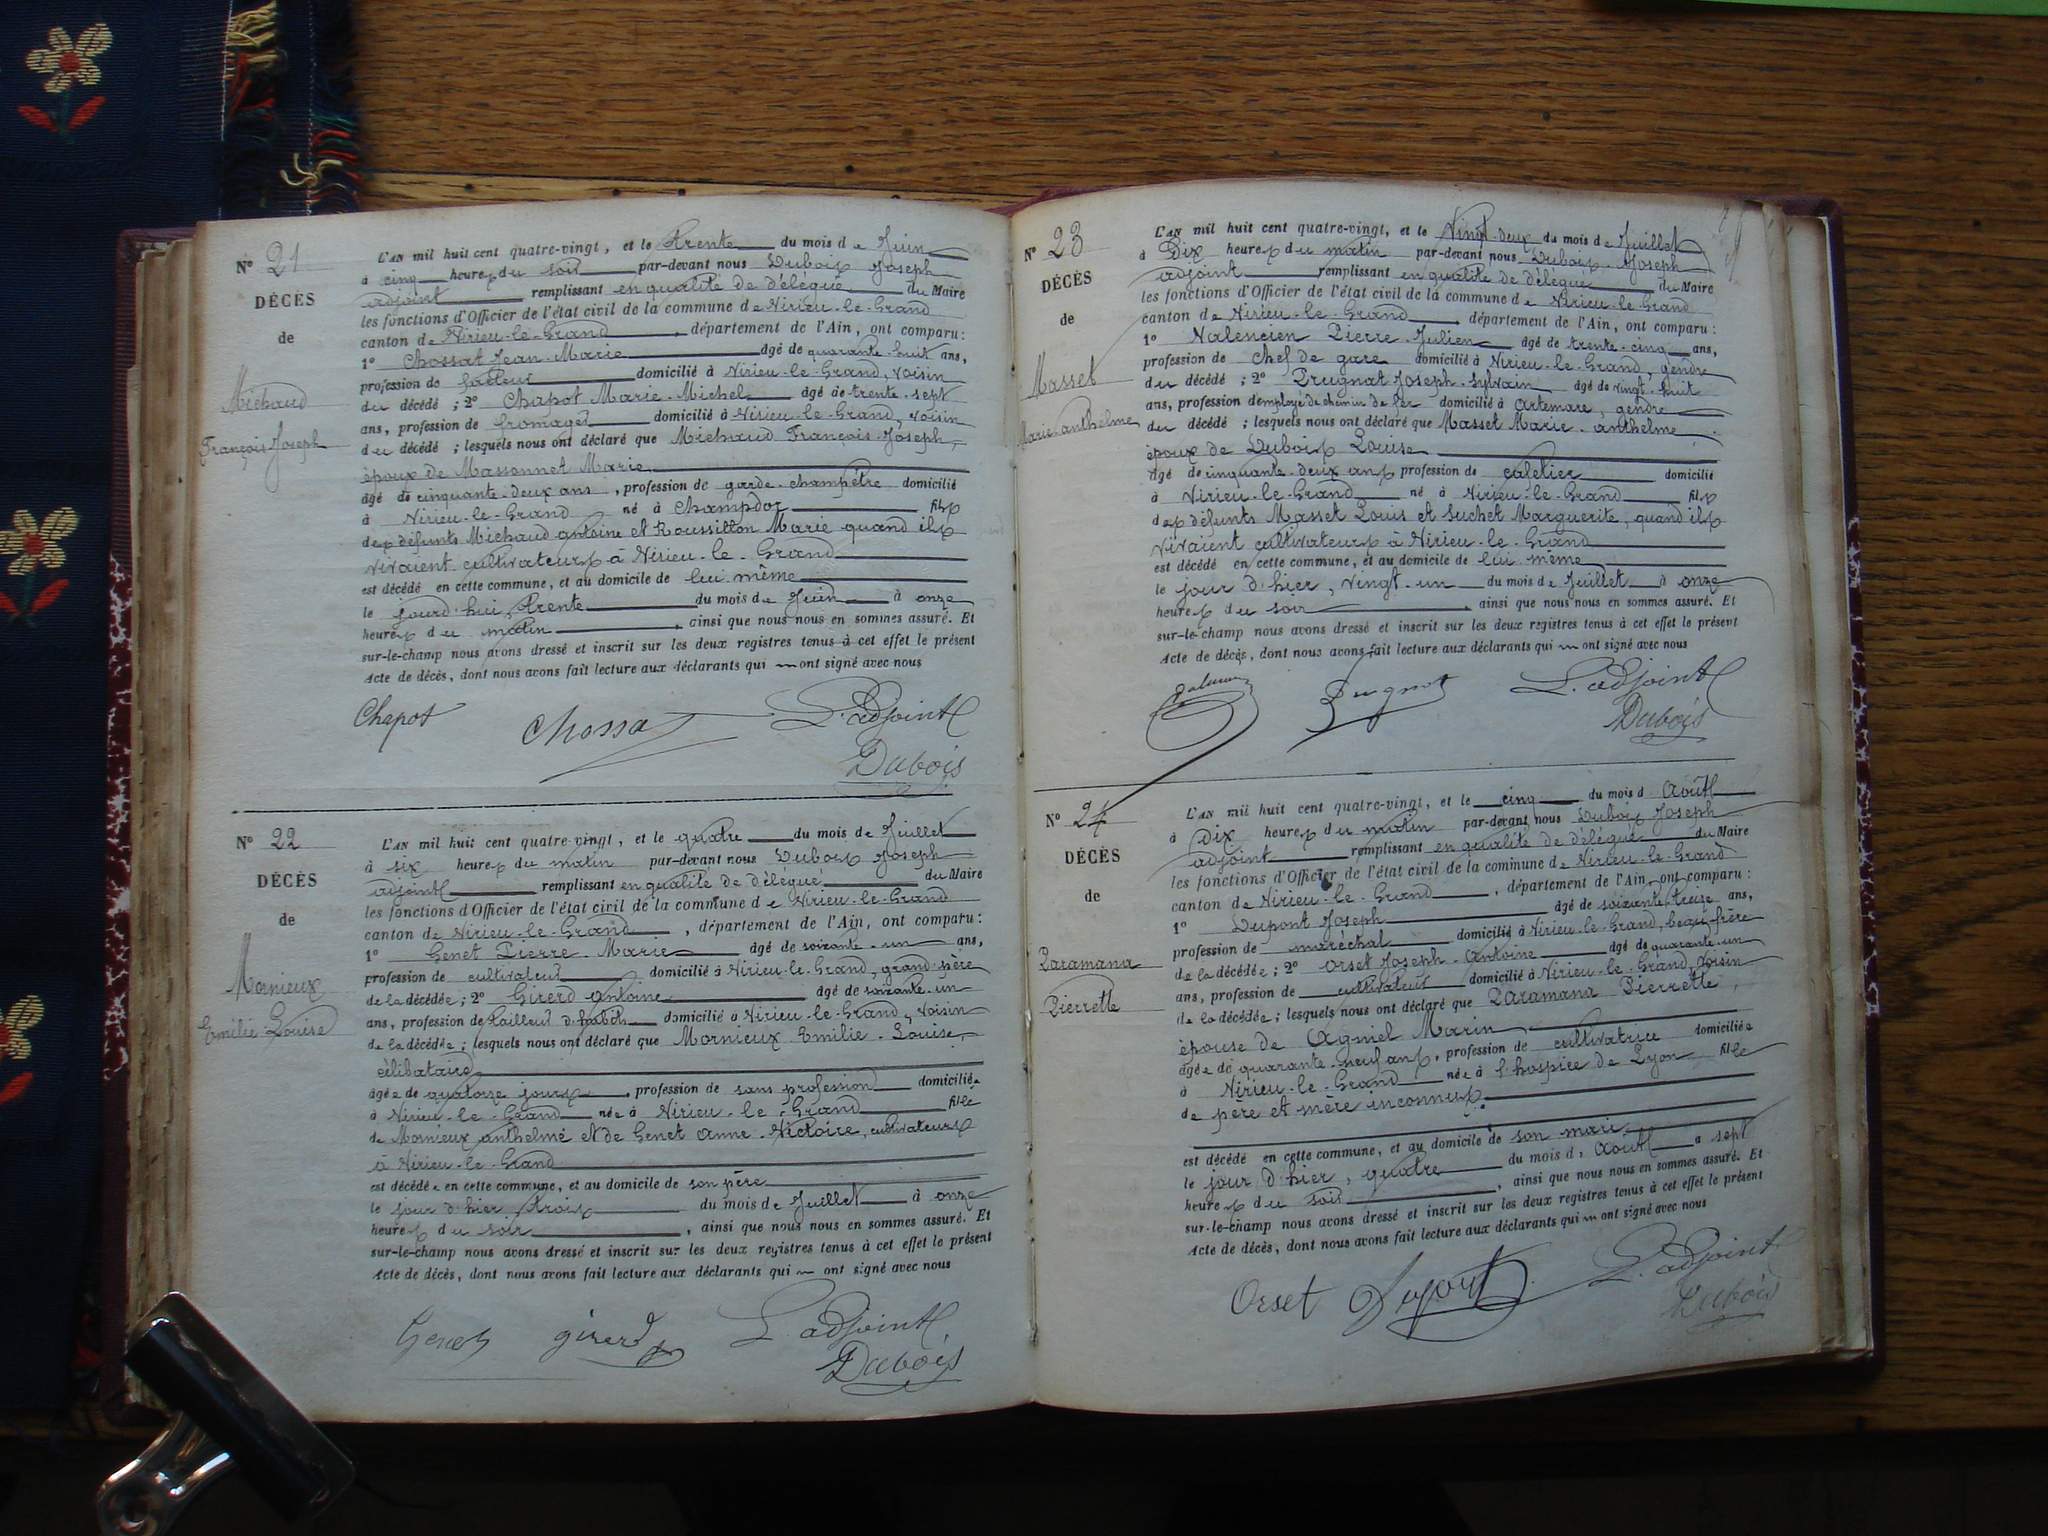 N° 21
DÉCÈS
de
Michaud
François-Joseph
L'AN mil huit cent quatre-vingt, et le trente du mois de Juin
à cinq heures du soir par-devant nous Dubois Joseph
adjoint remplissant en qualité de délégué du Maire
les fonctions d'Officier de l'état civil de la commune de Virieu-le-Grand
canton de Virieu-le-Grand, département de l'Ain, ont comparu:
1° Chossat Jean-Marie âgé de quarante-huit ans,
profession de facteur domicilié à Virieu-le-Grand, voisin
du décédé ; 2° Chapot Marie-Michel âgé de trente-sept
ans, profession de fromager domicilié à Virieu-le-Grand, voisin
du décédé ; lesquels nous ont déclaré que Michaud François-Joseph,
époux de Massonnet Marie
âgé de cinquante-deux ans, profession de garde-champêtre domicilié
à Virieu-le-Grand né à Champdor fils
des défunts Michaud Antoine et Roussillon Marie quand ils
vivaient cultivateurs à Virieu-le-Grand
est décédé en cette commune, et au domicile de lui-même
le jourd'hui trente du mois de Juin à onze
heures du matin, ainsi que nous nous en sommes assuré. Et
sur-le-champ nous avons dressé et inscrit sur les deux registres tenus à cet effet le présent
Acte de décès, dont nous avons fait lecture aux déclarants qui ont signé avec nous
Chapot Chossat L'adjoint
Dubois
N° 22
DÉCÈS
de
Mornieux
Emilie-Louise
L'AN mil huit cent quatre-vingt, et le quatre du mois de Juillet
à six heures du matin par-devant nous Dubois Joseph
adjoint remplissant en qualité de délégué du Maire
les fonctions d'Officier de l'état civil de la commune de Virieu-le-Grand
canton de Virieu-le-Grand, département de l'Ain, ont comparu:
1° Genet Pierre-Marie âgé de soixante-un ans,
profession de cultivateur domicilié à Virieu-le-Grand, grand-père
de la décédée; 2° Girerd Antoine âgé de soixante-un
ans, profession de tailleur d'habits domicilié à Virieu-le-Grand, voisin
de la décédée; lesquels nous ont déclaré que Mornieux Emilie-Louise,
célibataire
âgée de quatorze jours, profession de sans profession domiciliée
à Virieu-le-Grand née à Virieu-le-Grand fille
de Mornieux Anthelme et de Genet Anne-Victoire, cultivateurs
à Virieu-le-Grand
est décédée en cette commune, et au domicile de son père
le jour d'hier trois du mois de Juillet à onze
heures du soir, ainsi que nous nous en sommes assuré. Et
sur-le-champ nous avons dressé et inscrit sur les deux registres tenus à cet effet le présent
Acte de décès, dont nous avons fait lecture aux déclarants qui ont signé avec nous
Genet girerd L'adjoint
Dubois
N° 23
DÉCÈS
de
Masset
Marie-Anthelme
L'AN mil huit cent quatre-vingt, et le Vingt-deux du mois de Juillet
à Dix heures du matin par-devant nous Dubois-Joseph
adjoint remplissant en qualité de délégué du Maire
les fonctions d'Officier de l'état civil de la commune de Virieu-le-Grand
canton de Virieu-le-Grand, département de l'Ain, ont comparu:
1° Valencien Pierre-Julien âgé de trente-cinq ans,
profession de Chef de gare domicilié à Virieu-le-Grand, gendre
du décédé ; 2° Prugnat Joseph-Sylvain âgé de vingt-huit
ans, profession d'employé de chemin de fer domicilié à Artemare, gendre
du décédé ; lesquels nous ont déclaré que Masset Marie-Anthelme,
époux de Dubois Louise
âgé de cinquante-deux ans profession de cafetier domicilié
à Virieu-le-Grand né à Virieu-le-Grand fils
des défunts Masset Louis et Suchet Marguerite, quand ils
vivaient cultivateurs à Virieu-le-Grand
est décédé en cette commune, et au domicile de lui-même
le jour d'hier, vingt-un du mois de Juillet à onze
heures du soir, ainsi que nous nous en sommes assuré. Et
sur-le-champ nous avons dressé et inscrit sur les deux registres tenus à cet effet le présent
Acte de décès, dont nous avons fait lecture aux déclarants qui ont signé avec nous
L'adjoint
Dubois
N° 24
DÉCÈS
de
Paramana
Pierrette
L'AN mil huit cent quatre-vingt, et le cinq du mois d'Août
à Dix heures du matin par-devant nous Dubois Joseph
adjoint remplissant en qualité de délégué du Maire
les fonctions d'Officier de l'état civil de la commune de Virieu-le-Grand
canton de Virieu-le-Grand, département de l'Ain, ont comparu:
1° Dupont Joseph âgé de soixante-treize ans,
profession de maréchal domicilié à Virieu-le-Grand, beau-frère
de la décédée; 2° Orset Joseph-Antoine âgé de quarante-un
ans, profession de cultivateur domicilié à Virieu-le-Grand, voisin
de la décédée; lesquels nous ont déclaré que Paramana Pierrette,
épouse de Agniel Marin
âgée de quarante-neuf ans, profession de cultivatrice domiciliée
à Virieu-le-Grand née à l'hospice de Lyon fille
de père et mère inconnus.
est décédé en cette commune, et au domicile de son mari
le jour d'hier, quatre du mois d'Août à sept
heures du soir, ainsi que nous nous en sommes assuré. Et
sur-le-champ nous avons dressé et inscrit sur les deux registres tenus à cet effet le présent
Acte de décès, dont nous avons fait lecture aux déclarants qui ont signé avec nous
Orset Dupont L'adjoint
Dubois